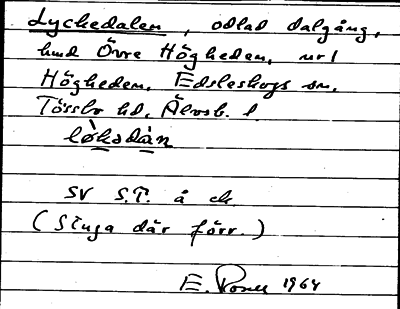 Lyckedalen, odlad dalgång,
hmd Övre Högheden, nr 1
Högheden. Edsleskogs sn.
Tössbo hd. Älvsb. l
lø̀kədàn
SV S.T. å ek.
(Stuga där förr.)
E. 1964